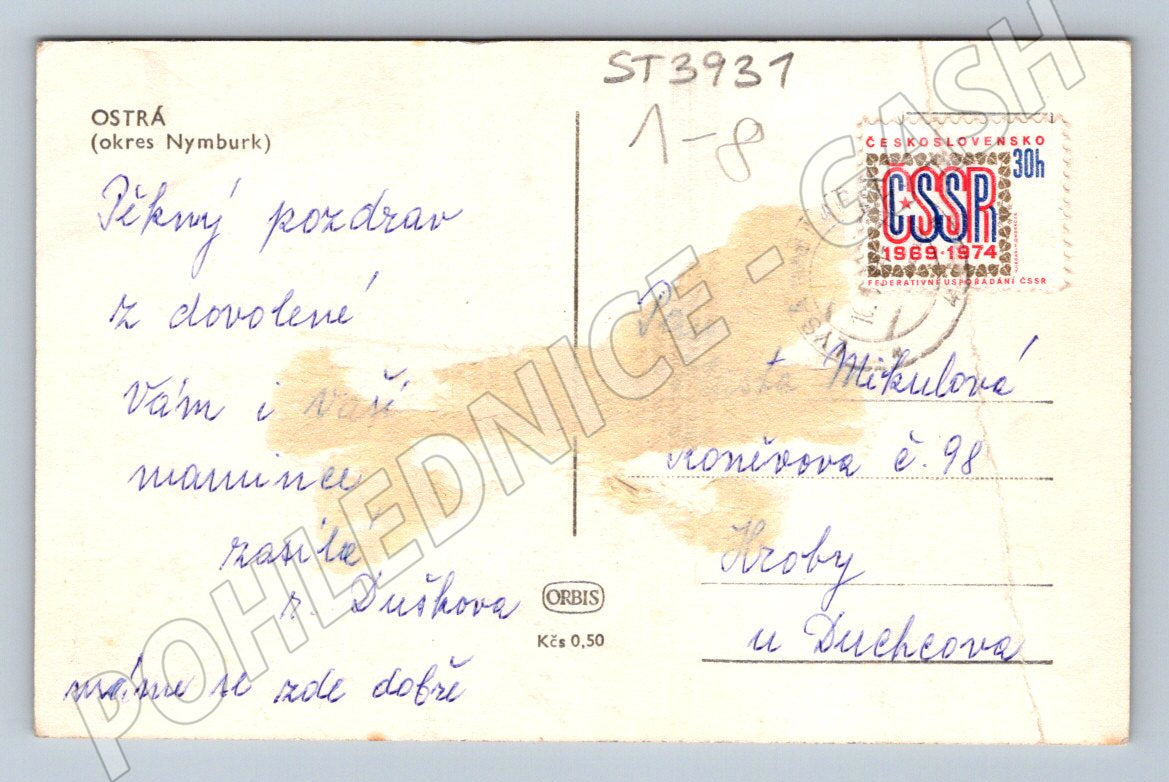 ST3931
1-8
OSTRÁ
(okres Nymburk)
Pěkný pozdrav
z dovolené
Vám i Vaší
mamince
zasílá
r. Dušková
máme se zde dobře
ORBIS
Kčs 0,50
ČESKOSLOVENSKO
30h
ČSSR
1969·1974
FEDERATIVNÍ USPOŘÁDÁNÍ ČSSR
Mikulová
Koněvova č. 98
Hroby
u Duchcova
POHLEDNICE - CASH